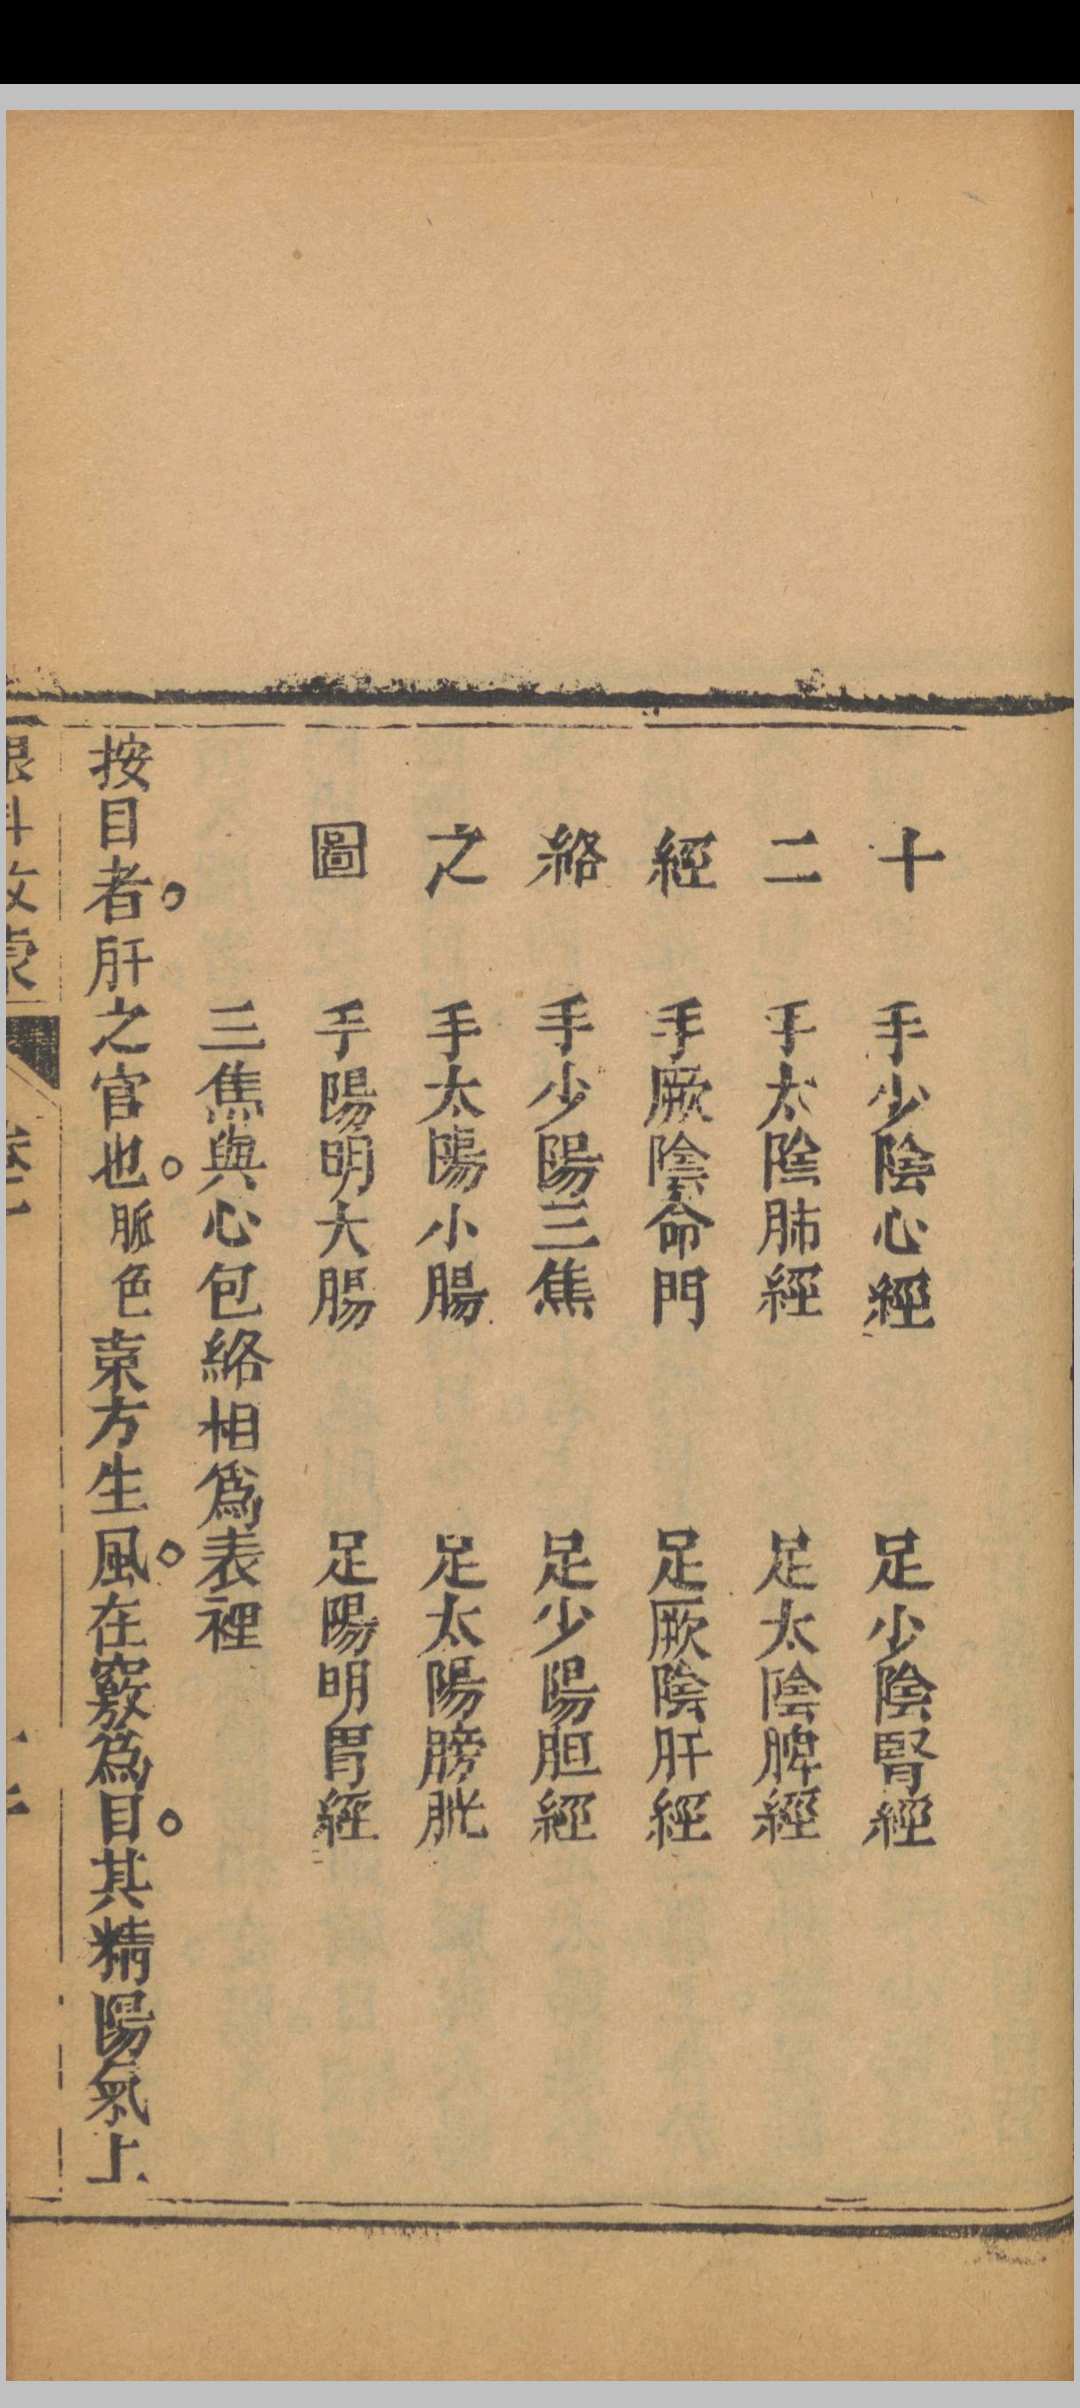 十 手少陰心經 足少陰腎經
二 手太陰肺經 足太陰脾經
經 手厥陰命門 足厥陰肝經
絡 手少陽三焦 足少陽胆經
之 手太陽小腸 足太陽膀胱
圖 手陽明大腸 足陽明胃經
三焦與心包絡相爲表裡
按目者。肝之官也。脈色東方生風。在竅爲目。其精陽氣上